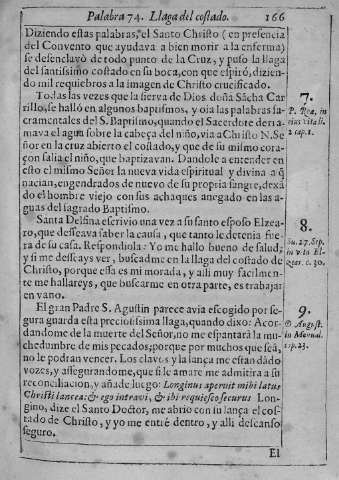 Palabra 74. Llaga del costado. 166
Diziendo estas palabras, el Santo Christo (en presencia
del Convento que ayudava a bien morir a la enferma)
se desenclavò de todo punto de la Cruz, y puso la llaga
del santissimo costado en su boca, con que espirò, dizien-
do mil requiebros a la imagen de Christo crucificado.
Todas las vezes que la sierva de Dios doña Sācha Car
rillo, se hallò en algunos baptismos, y oìa las palabras sa-
cramentales del S. Baptismo, quando el Sacerdote derra-
mava el agua sobre la cabeça del niño, via a Christo N. Se
ñor en la cruz abierto el costado, y que de su mismo cora-
çon salia el niño, que baptizavan. Dandole a entender en
esto el mismo Señor la nueva vida espiritual y divina a q̄
nacian, engendrados de nuevo de su propria sangre, dexā
do el hombre viejo con sus achaques anegado en las a-
guas del sagrado Baptismo.
7.
P. Roa, in
eius vita li.
2 cap. 1.
Santa Delfina escrivio una vez a su santo esposo Elzea-
ro, que desseava saber la causa, que tanto le detenia fue
ra de su casa. Respondiola: Yo me hallo bueno de salud;
y si me desseays ver, buscadme en la llaga del costado de
Christo, porque essa es mi morada, y alli muy facilmen-
te me hallareys, que buscarme en otra parte, es trabajar
en vano.
8.
Su. 27. Sep.
in vita El-
zear. c. 30.
El gran Padre S. Agustin parece avia escogido por se-
gura guarda esta preciosissima llaga, quando dixo: Acor-
dandome de la muerte del Señor, no me espantarà la mu-
chedumbre de mis pecados, porque por muchos que seā,
no le podran vencer. Los clavos y la lança me estan dādo
vozes, y assegurandome, que si le amare me admitira a su
reconciliacion, y añade luego: Longinus aperuit mihi latus
Christi lancea: & ego intravi, & ibi requiesco securus Lon-
gino, dize el Santo Doctor, me abrio con su lança el cos-
tado de Christo, y yo me entrè dentro, y alli descanso
seguro.
9.
D August.
in Manual.
cap. 23.
El